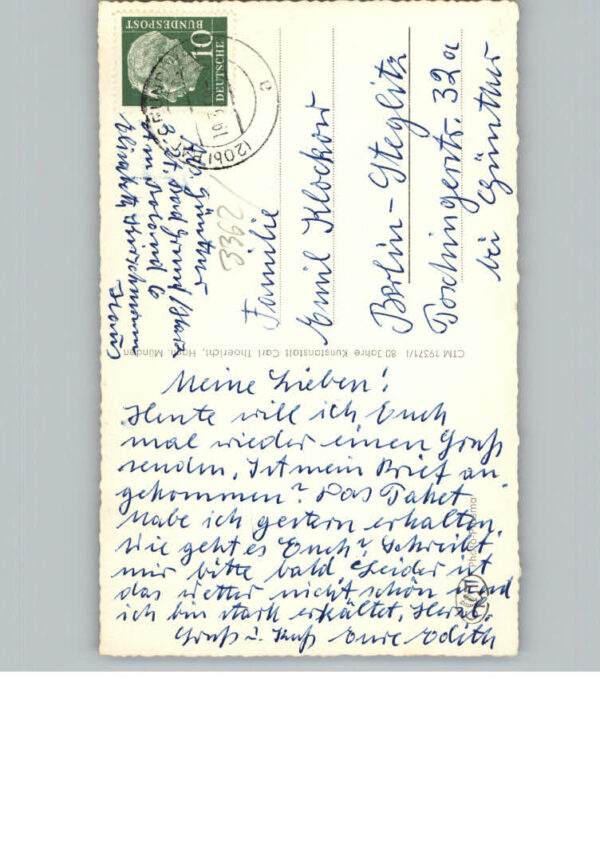 Meine Lieben!
Heute will ich Euch
mal wieder einen Gruß
senden, Ist mein Brief an
gekommen? Das Paket
habe ich gestern erhalten.
Wie geht es Euch? Schreibt
mir bitte bald, Leider ist
das Wetter nicht schön und
ich bin stark erkältet, Herzl.
Gruß u. Kuß Eure Edith
Familie
Emil Klockow
Berlin-Steglitz
Poschingerstr. 32a
bei Günther
Günther
Bad Grund/Harz
Elisabeth
3362
DEUTSCHE
BUNDESPOST
10
(20b)
CTM 19371/1 80 Jahre Kunstanstalt Carl Thoericht, Hann. Münden